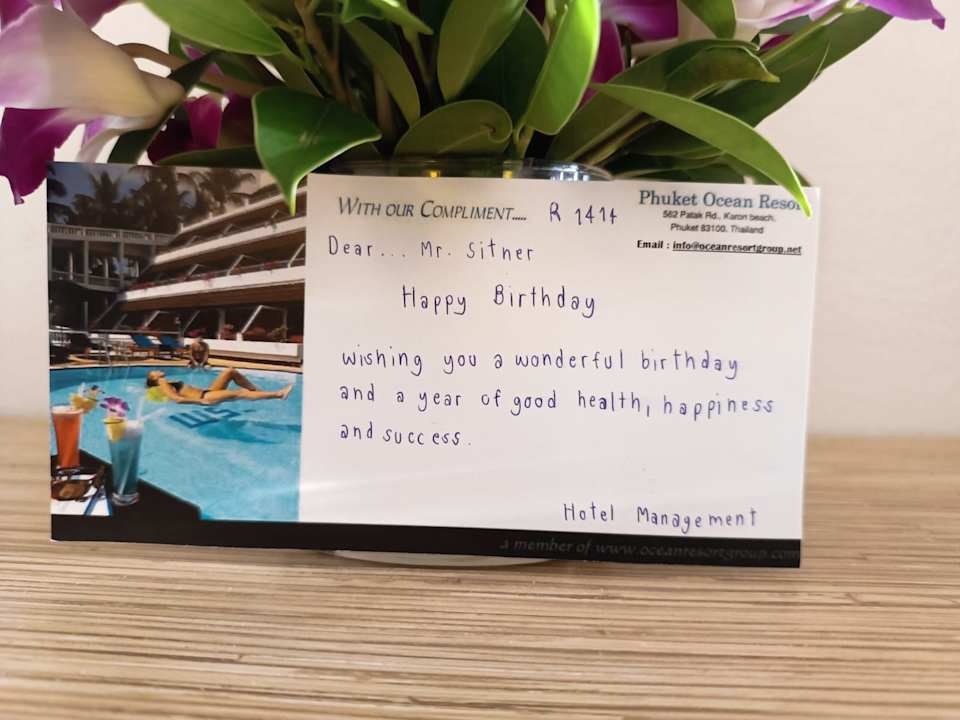 WITH OUR COMPLIMENT..... R 1414
Phuket Ocean Resor
562 Patak Rd., Karon beach,
Phuket 83100, Thailand
Email : info@oceanresortgroup.net
Dear... Mr. Sitner
Happy Birthday
wishing you a wonderful birthday
and a year of good health, happiness
and success.
Hotel Management
a member of www.oceanresortgroup.com